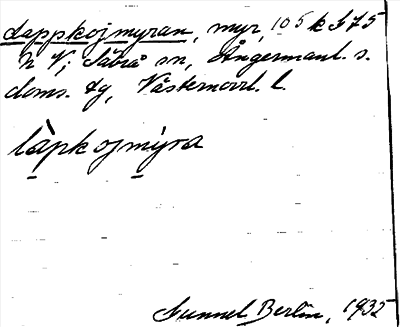 Lappkojmyran, myr, 105 k S 75
N V; Säbrå sn, Ångermanl. s.
doms. tg, Västernorrl. l.
làpkojmýra
Gunnel Berlin, 1935